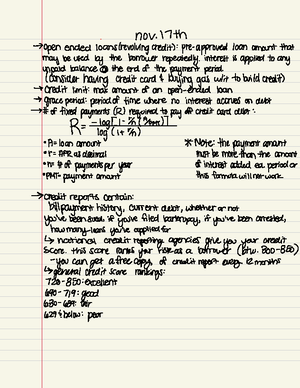 nov. 17th
→ Open ended loans (revolving credit): pre-approved loan amount that
may be used by the borrower repeatedly, interest is applied to any
unpaid balance @ the end of the payment period
(consider having credit card & buying gas w/it to build credit)
→ Credit limit: max amount of an open-ended loan
→ Grace period: period of time where no interest accrues on debt
→ # of fixed payments (R) required to pay off credit card debt:
R = -log[1 - r/n ( )] / log(1 + r/n)
• A = loan amount
• r = APR as decimal
• n = # of payments per year
• PMT = payment amount
* Note: the payment amount
must be more than the amount
of interest added ea. period or
this formula will not work.
→ Credit reports contain:
bill payment history, current debt, whether or not
you've been sued, if you've filed bankruptcy, if you've been arrested,
how many loans you've applied for
↳ national credit reporting agencies give you your credit
score. this score ranks your risk as a borrower (btw. 300-850)
- you can get a free copy of credit report every 12 months
↳ general credit score rankings:
720-850: excellent
690-719: good
630-689: fair
629 & below: poor